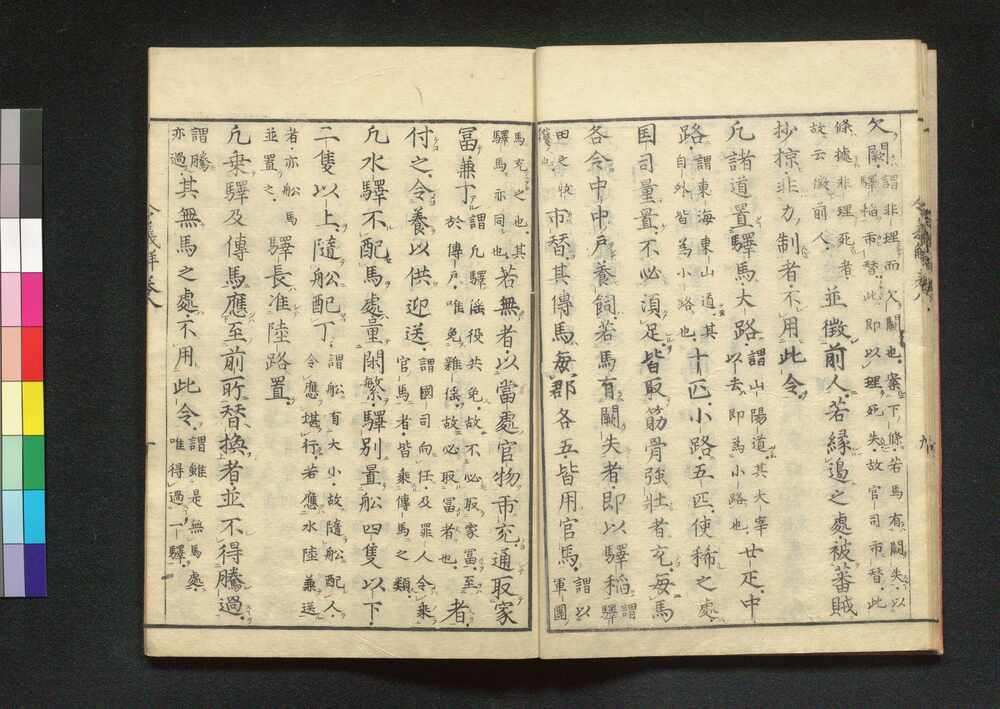 欠闕。謂非理而欠闕也。案下條若馬有闕失以
驛稻市替。此即以理死失。故官司市替。此
條據非理死者。
故云徵前人。並徵前人。若縁邊之處。被蕃賊
抄掠。非力制者。不用此令。
凡諸道置驛馬。大路謂山陽道。其大宰
以去。即爲小路也。廿疋。中
路謂東海東山道。其
自外皆爲小路也。十匹。小路五匹。使稀之處。
国司量置。不必須足。皆取筋骨強壯者充。毎馬
各令中中戸養飼。若馬有闕失者。即以驛稻謂
驛
田之
稻也市替。其傳馬毎郡各五。皆用官馬。謂以
軍團
馬充之也。其
驛馬亦同也。若無者。以當處官物市充。通取家
冨兼丁謂凡驛徭役共免。故不必取家冨。至
於傳戸。唯免雜徭。故必取冨者也。者。
付之。令養以供迎送。謂國司向任。及罪人令乘
官馬者。皆乘傳馬之類
凡水驛不配馬處。量閑繁。驛別置舩四隻以下。
二隻以上。隨舩配丁。謂舩有大小。故隨舩配人。
令應堪行。若應水陸兼送
者。亦舩馬
並置之。驛長准陸路置。
凡乗驛及傳馬應至前所替換者。並不得騰過。
謂騰
亦過。其無馬之處。不用此令。謂雖是無馬處。
唯得過一驛。
令義解卷八
九